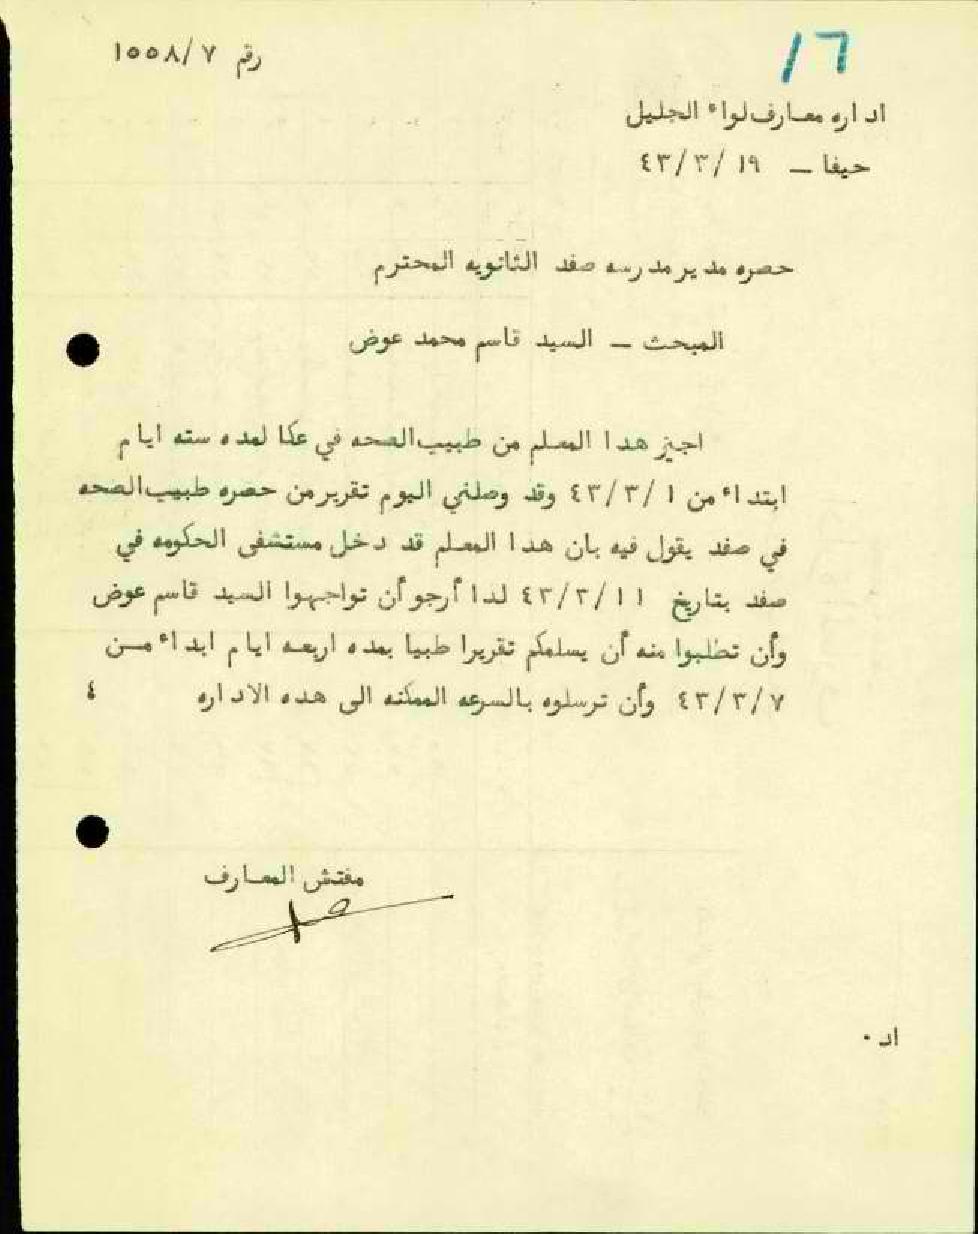 رقم ١٥٥٨/٧
١٦
اداره معارف لواء الجليل
حيفا — ٤٣/٣/١٩
حصره مدير مدرسه صفد الثانويه المحترم
المبحث — السيد قاسم محمد عوض
اجيز هدا المعلم من طبيب الصحه في عكا لمده سته ايام
ابتداء من ٤٣/٣/١ وقد وصلني اليوم تقرير من حصره طبيب الصحه
في صفد يقول فيه بان هدا المعلم قد دخل مستشفى الحكومه في
صفد بتاريخ ٤٣/٣/١١ لدا أرجو أن تواجهوا السيد قاسم عوض
وأن تطلبوا منه أن يسلمكم تقريرا طبيا بمده اربعه ايام ابداء مـن
٤٣/٣/٧ وأن ترسلوه بالسرعه الممكنه الى هده الاداره ٤
مفتش المعارف
اد٠